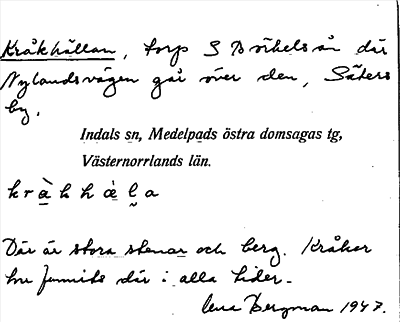 Kråkhällan, torp S Börkelsån där
Nylandsvägen går över den, Säters
by.
Indals sn, Medelpads östra domsagas tg,
Västernorrlands län.
krà̱khὰl̬a
Där är stora stenar och berg. Kråkor
har funnits där i alla tider.
Bergman 1947.